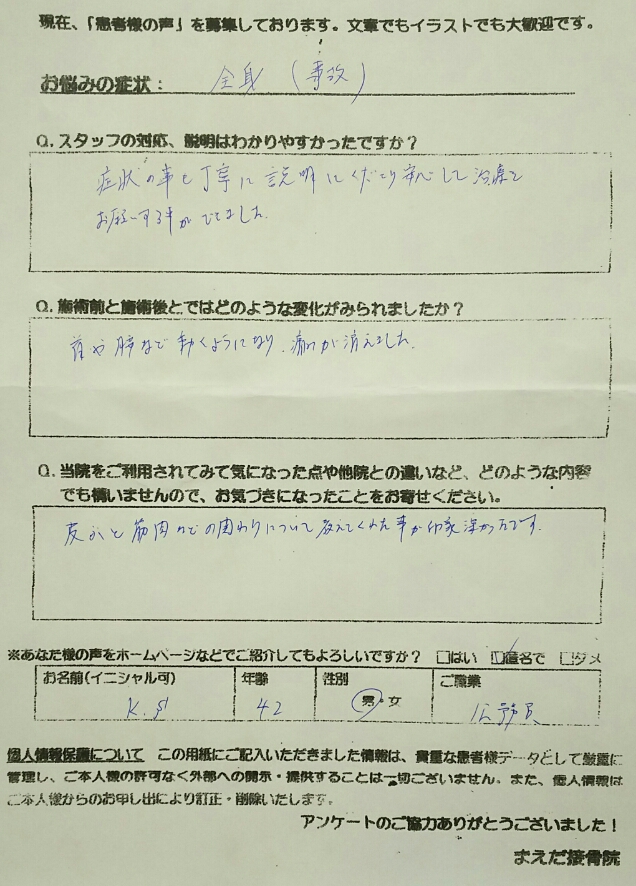 現在、「患者様の声」を募集しております。文章でもイラストでも大歓迎です。
お悩みの症状： 全身（事故）
Q. スタッフの対応、説明はわかりやすかったですか？
症状の事も丁寧に説明してくださり安心して治療を
お願いする事ができました。
Q. 施術前と施術後とではどのような変化がみられましたか？
首や腰など動くようになり、痛みが消えました。
Q. 当院をご利用されてみて気になった点や他院との違いなど、どのような内容
でも構いませんので、お気づきになったことをお寄せください。
と筋肉などの関わりについて教えてくれた事が印象深かったです。
※あなた様の声をホームページなどでご紹介してもよろしいですか？ □はい ☑匿名で □ダメ
お名前(イニシャル可) 年齢 性別 ご職業
K.S 42 男・女 公務員
個人情報保護について この用紙にご記入いただきました情報は、貴重な患者様データとして厳重に
管理し、ご本人様の許可なく外部への開示・提供することは一切ございません。また、個人情報は
ご本人様からのお申し出により訂正・削除いたします。
アンケートのご協力ありがとうございました！
まえだ接骨院